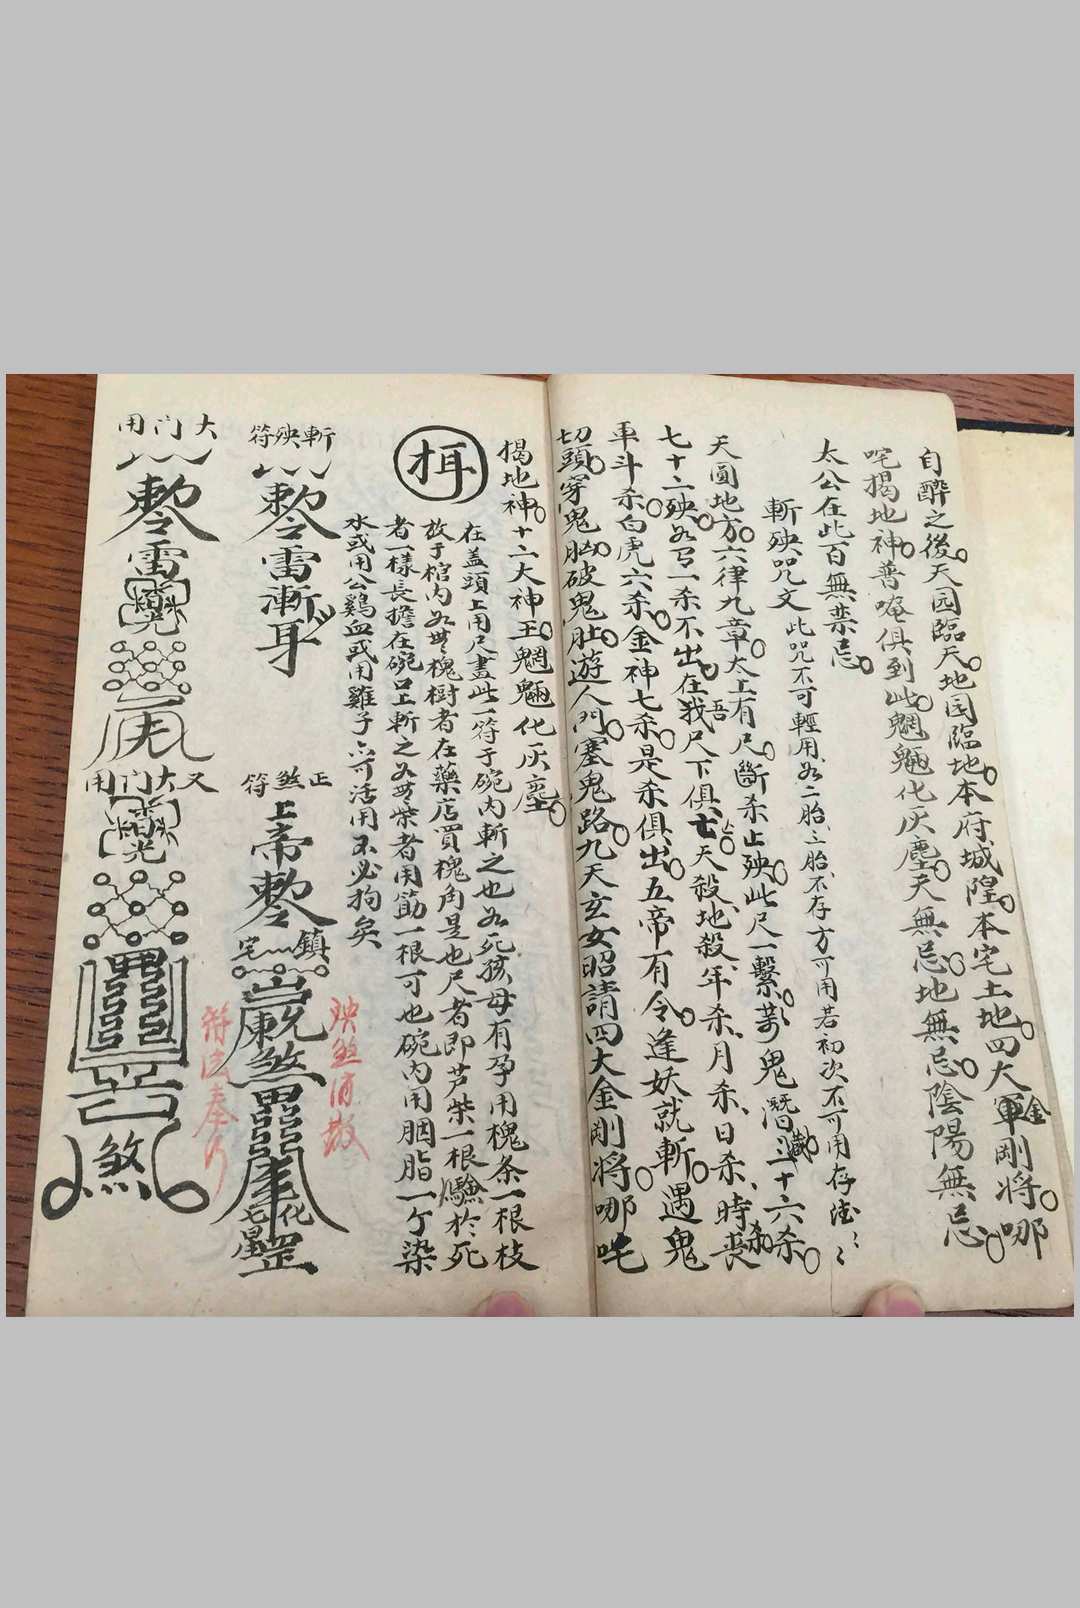 自醉之後天园臨天地园臨地本府城隍本宅土地四大金剛將軍哪
咤揭地神普唵俱到此魍魎化灰塵天無忌地無忌陰陽無忌
太公在此百無禁忌
斬殃咒文此咒不可輕用如二胎三胎不存方可用若初次不可用存德
天圓地方六律九章太上有尺斷杀止殃此尺一繫萬鬼潛藏三十六杀
七十二殃如吾一杀不出在我尺下俱亡天殺地殺年杀月杀日杀時杀喪
車斗杀白虎六杀金神七杀是杀俱出五帝有令逢妖就斬遇鬼
切頭穿鬼胸破鬼肚遊人門塞鬼路九天玄女昭請四大金剛將哪吒
揭地神十二大神王魍魎化灰塵
在盖頭上用尺畫此一符于碗内斬之也如死孩母有孕用槐条一根枝
放于棺内如無槐樹者在藥店買槐角是也尺者即芦柴一根驗於死
者一樣長擔在碗口上斬之如無柴者用筋一根可也碗内用胭脂一个染
水或用公鷄血或用雞子亦可活用不必拘矣
斬殃符
敕令雷漸耳
正煞符
上帝敕令
鎮宅
煞
化
七星罡
殃煞消散
符法奉行
大门用
敕令雷
光
又大门用
光
煞